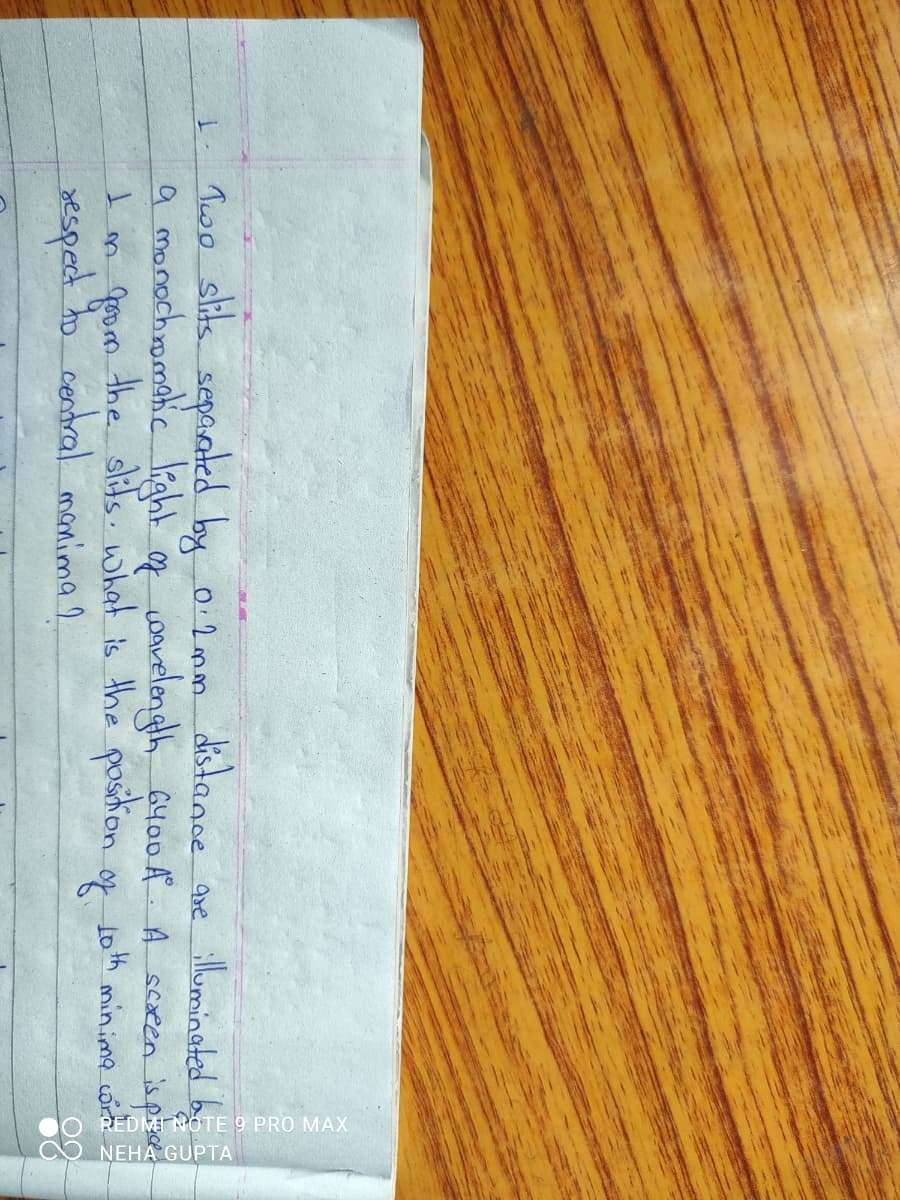 1. Two slits separated by 0.2 mm distance are illuminated b
a monochromatic light of wavelength 6400 A°. A screen is
1 m from the slits. what is the position of 10th minima
respect to central maxima?
REDMI NOTE 9 PRO MAX
NEHA GUPTA